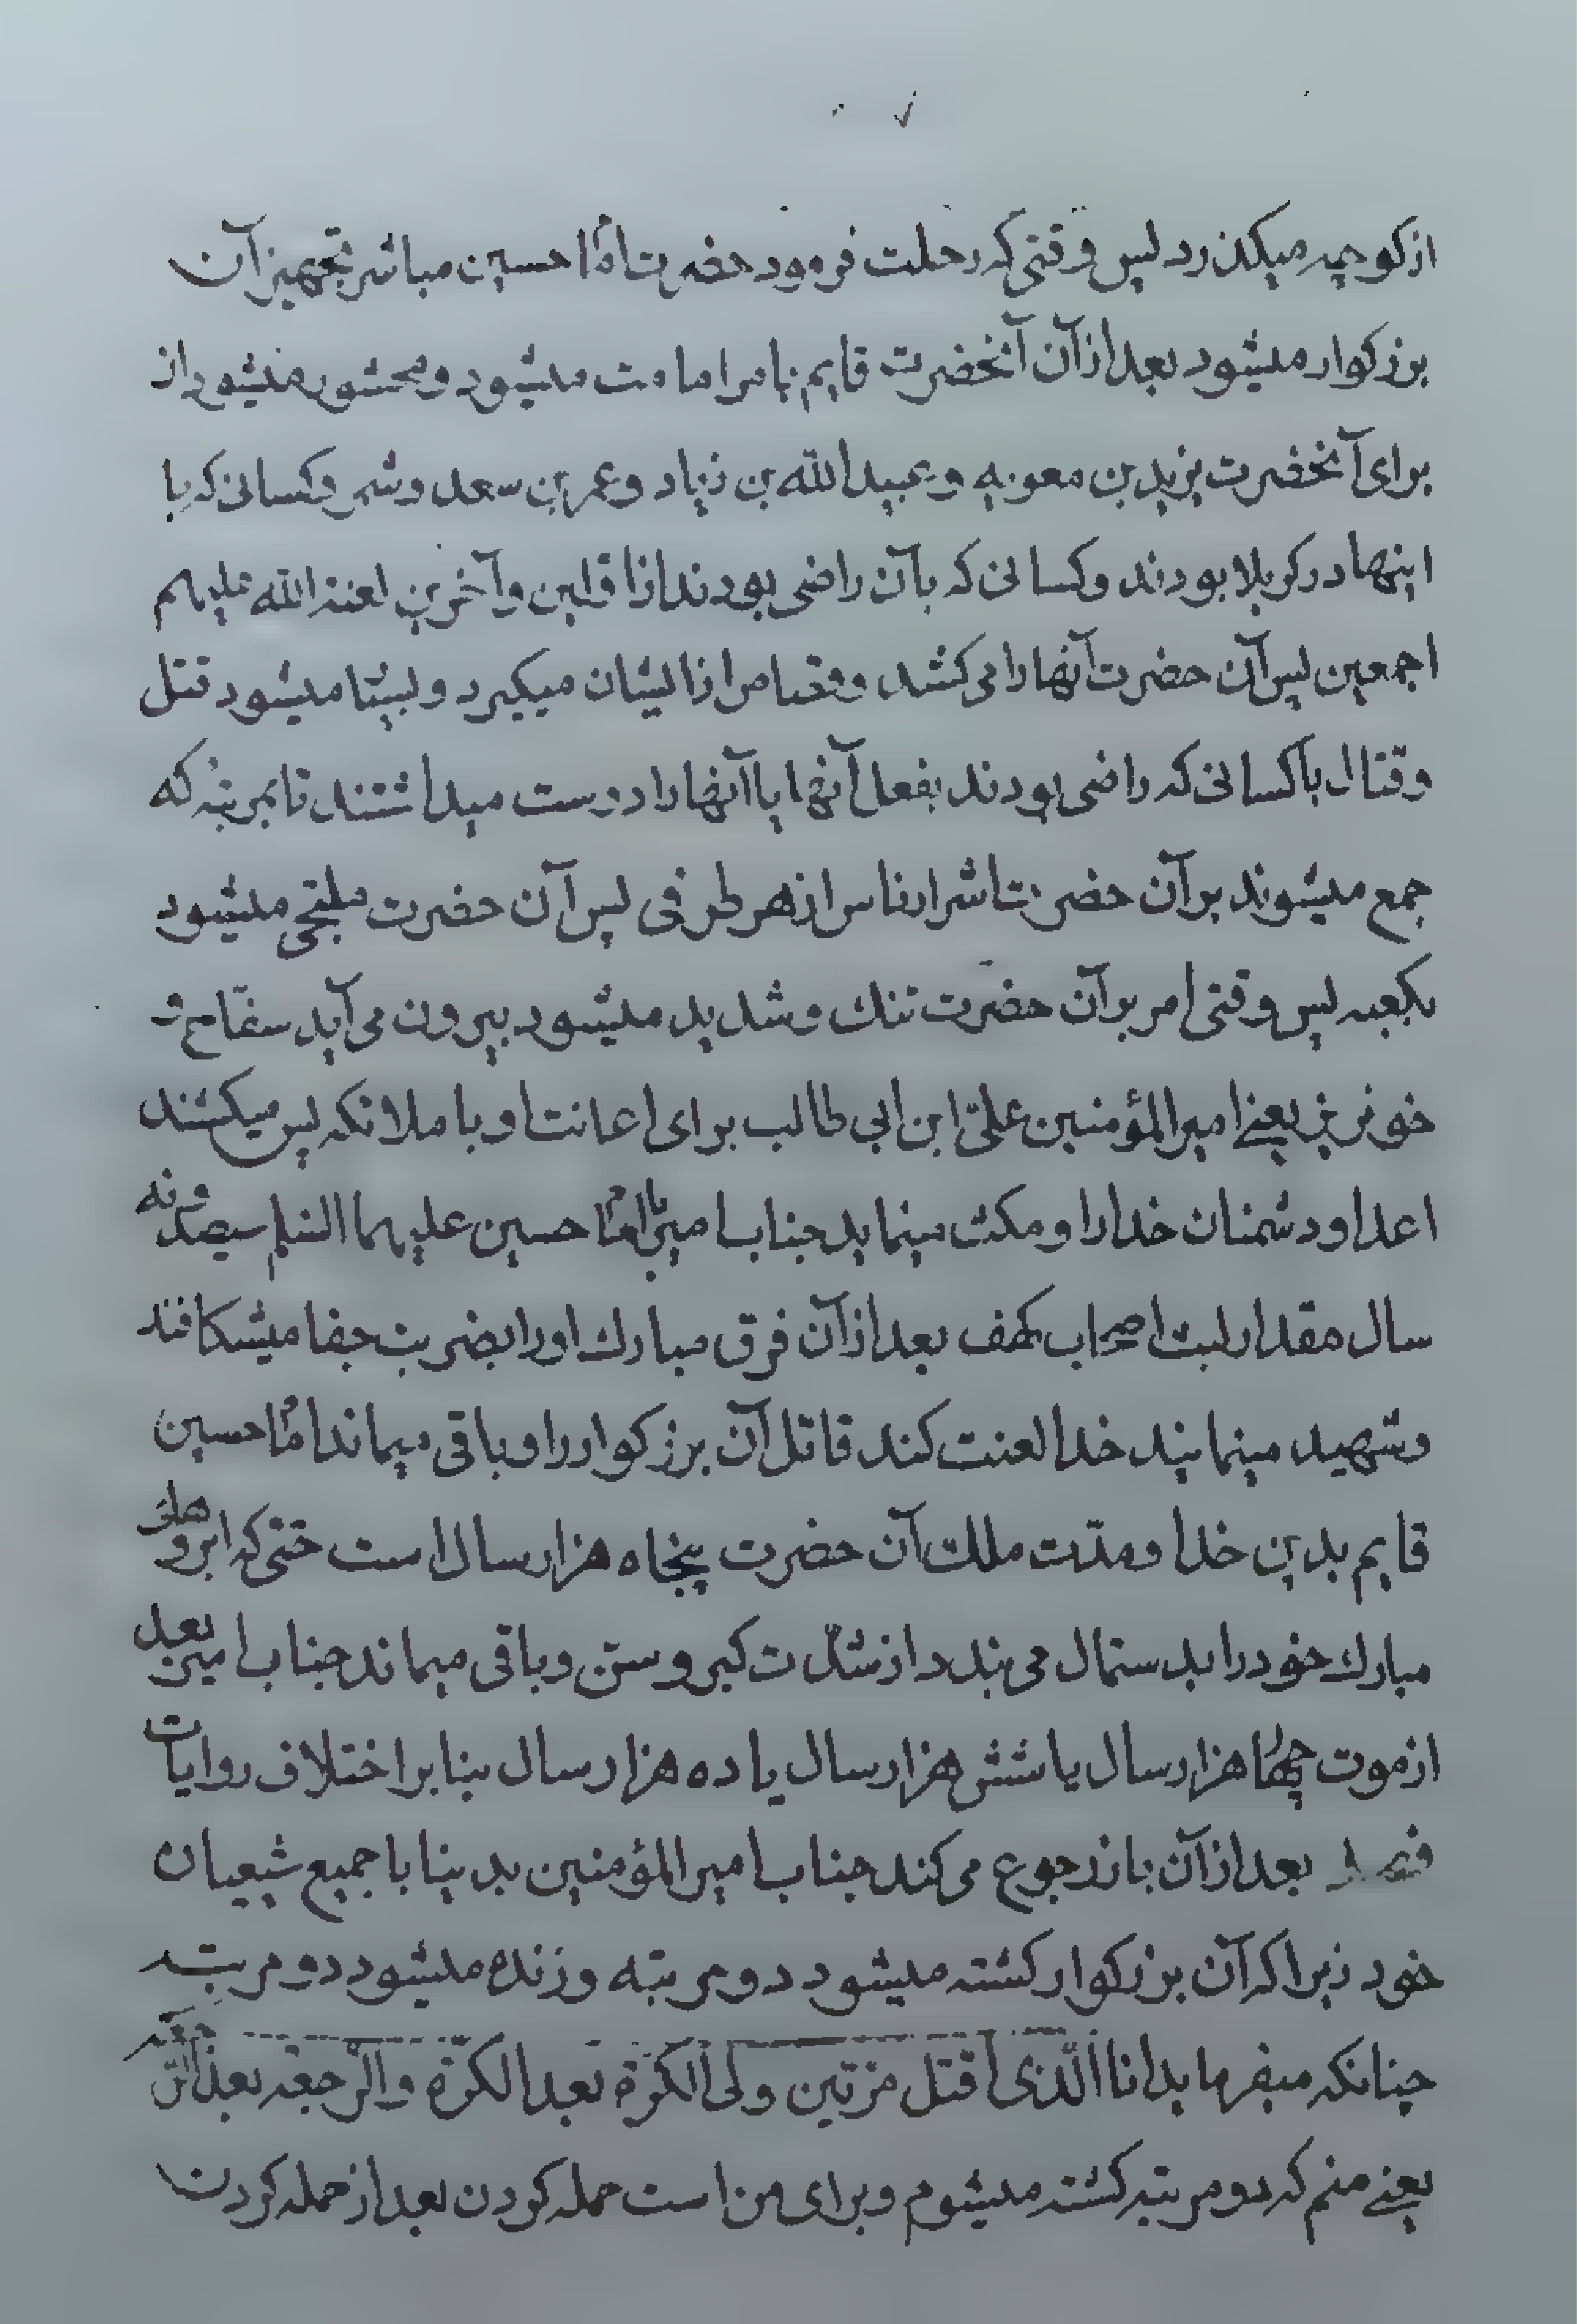 ازکوچه میکذرد لپس وقتی که رحلت فرمود حضرت امام حسین مباشر تجهیز آن
بزرکوار میشود بعداز آن آنحضرت قایم بامر امامت میشود و محشور میشود از
برای آنحضرت یزید بن معویه و عبیدالله بن زیاد و عمر بن سعد و شمر و کسانی که با
اینها در کربلا بودند و کسانی که بآن راضی بودند از اولین و آخرین لعنة الله علیهم
اجمعین پس آن حضرت آنها را می کشد و قصاص از ایشان میکیرد و بسیا میشود قتل
و قتال با کسانی که راضی بودند بفعل آنها یا آنها را دوست میداشتند تا بمرتبهٔ که
جمع میشوند بر آن حضرت اشرار ناس از هر طرفی پس آن حضرت ملتجی میشود
بکعبه پس وقتی امر بر آن حضرت تنك و شدید میشود بیرون می آید سفّاح و
خونریز یعنے امیرالمؤمنین علیّ ابن ابی طالب برای اعانت او با ملائکه پس میکشند
اعدا و دشمنان خدا را و مکث مینماید جناب امیر با امام حسین علیهما السلم سیصد و نه
سال مقدار لبث اصحاب کهف بعداز آن فرق مبارك او را بضربت جفا میشکافند
و شهید مینمایند خدا لعنت کند قاتل آن بزرکوار را و باقی میماند امام حسین
قایم بدین خدا و مدّت ملك آن حضرت پنجاه هزار سال است حتی که ابروهای
مبارك خود را بدستمال می بندد از شدّت کبر و سن و باقی میماند جناب امیر بعد
از موت چهار هزار سال یا شش هزار سال یا ده هزار سال بنا بر اختلاف روایات
فصل بعداز آن باز رجوع می کند جناب امیرالمؤمنین بدینا با جمیع شیعیان
خود زیرا که آن بزرکوار کشته میشود دو مرتبه و زنده میشود دو مرتبه
چنانکه میفرماید انا الّذی اقتل مرّتین و لی الکرّة بعد الکرّة و الرّجعه بعد الرّجعه
یعنے منم که دو مرتبه کشته میشوم و برای من است حمله کردن بعد از حمله کردن